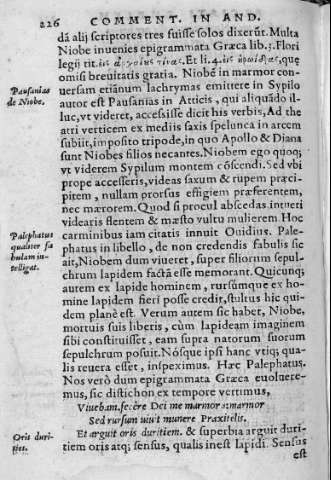 226 COMMENT. IN AND.
dā alij scriptores tres suisse solos dixerūt. Multa
Niobe inuenies epigrammata Græca lib. 3. Flori
legij tit. εἰς ἀρχαίους τινας. Et li. 4. εἰς ἡρωίδας, quę
omisi breuitatis gratia. Niobē in marmor con-
uersam etiānum lachrymas emittere in Sypilo
Pausanias de Niobe.
autor est Pausanias in Atticis, qui aliquādo il-
luc, vt videret, accessisse dicit his verbis, Ad the
atri verticem ex mediis saxis spelunca in arcem
subiit, imposito tripode, in quo Apollo & Diana
sunt Niobes filios necantes. Niobem ego quoq;
vt viderem Sypilum montem cōscendi. Sed vbi
prope accesseris, videas saxum & rupem præci-
pitem, nullam prorsus effigiem præferentem,
nec mærorem. Quod si procul abscedas, intueri
videaris flentem & mæsto vultu mulierem Hoc
Palephatus qualiter fabulam intelligat.
carminibus iam citatis innuit Ouidius. Pale-
phatus in libello, de non credendis fabulis sic
ait, Niobem dum viueret, super filiorum sepul-
chrum lapidem factā esse memorant. Quicunq;
autem ex lapide hominem, rursúmque ex ho-
mine lapidem fieri posse credit, stultus hic qui-
dem planè est. Verum autem sic habet, Niobe,
mortuis suis liberis, cùm lapideam imaginem
sibi constituisset, eam supra natorum suorum
sepulchrum posuit. Nósque ipsi hanc vtiq; qua-
lis reuera esset, inspeximus. Hæc Palephatus.
Nos verò dum epigrammata Græca euoluere-
mus, sic distichon ex tempore vertimus,
Viuebam, fecêre Dei me marmor: at marmor
Sed rursum uiuit munere Praxitelis.
Oris durities.
Et arguit oris duritiem. & superbia arguit duri-
tiem oris atq; sensus, qualis inest lapidi. Sensus
est